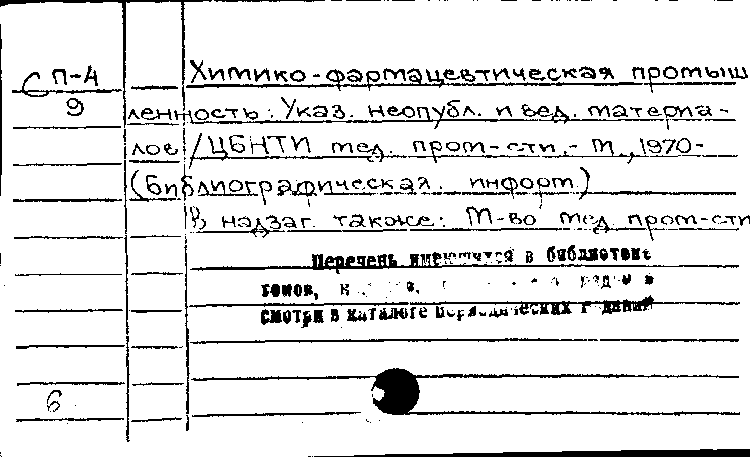 СП-4
9
Химико-фармацевтическая промыш
ленность: Указ. неопубл. и вед. материа-
лов /ЦБНТИ мед. пром-сти.- М., 1970-
(Библиографическая информ.)
В надзаг. также: М-во мед пром-сти
Перечень имеющихся в библиотеке
томов,
смотри в каталоге периодических изданий
6